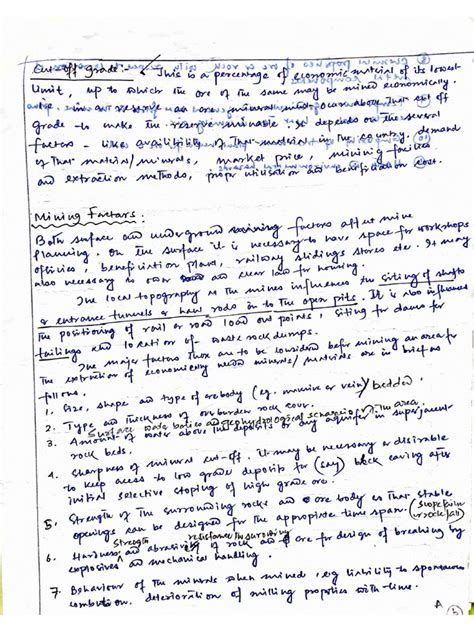 Cut-off grade:- This is a percentage of economic material of its lowest
limit, up to which the ore of the same may be mined economically.
in an reserve ore mineral must occur above that cut off
grade - to make the reserve minable. It depends on the several
factors - like availability of that material in the country, demand
of that material/minerals, market price, mining facilities
and extraction methods, proper utilisation and beneficiation cost.
Mining Factors:
Both surface and underground mining factors affect mine
planning. On the surface it is necessary to have space for workshops
offices, beneficiation plant, railway slidings stores etc. It may
also necessary to own and clear land for housing.
The local topography in the mines influences the siting of shafts
& entrance tunnels & haul roads in to the open pits. It is also influences
the positioning of rail or road load out points, siting for dams for
tailings and location of waste rock dumps.
The major factors there are to be considered before mining an area for
the extraction of economically minerals/materials are in brief as
follows.
1. Size, shape and type of ore body (eg. massive or vein)/bedded.
2. Type and thickness of overburden rock cover.
Surface water bodies and geohydrological scenario of the area.
3. Amount of water above the deposits or any aquifer in superjacent
rock beds.
4. Sharpness of mineral cut-off. It may be necessary or desirable
to keep access to low grade deposits for (say) block caving after
initial selective stoping of high grade ore.
5. Strength of the surrounding rocks and ore body so that stable
openings can be designed for the appropriate time span. (slope failure/rockfall)
Strength
6. Hardness and abrasivity of rock and ore for design of breaking by
explosives and mechanical handling.
7. Behaviour of the minerals when mined, eg liability to spontaneous
combustion, deterioration of milling properties with time.
A